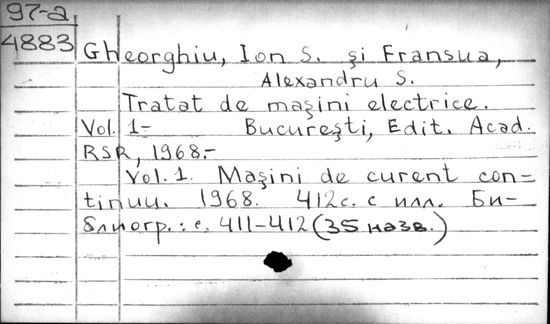 97-а
4883
Gheorghiu, Ion S. şi Fransua,
Alexandru S.
Tratat de maşini electrice.
Vol. 1- Bucureşti, Edit. Acad.
RSR, 1968.-
Vol. 1. Maşini de curent con-
tinuu. 1968. 412с. с илл. Би-
блиогр.: с. 411-412 (35 назв.)